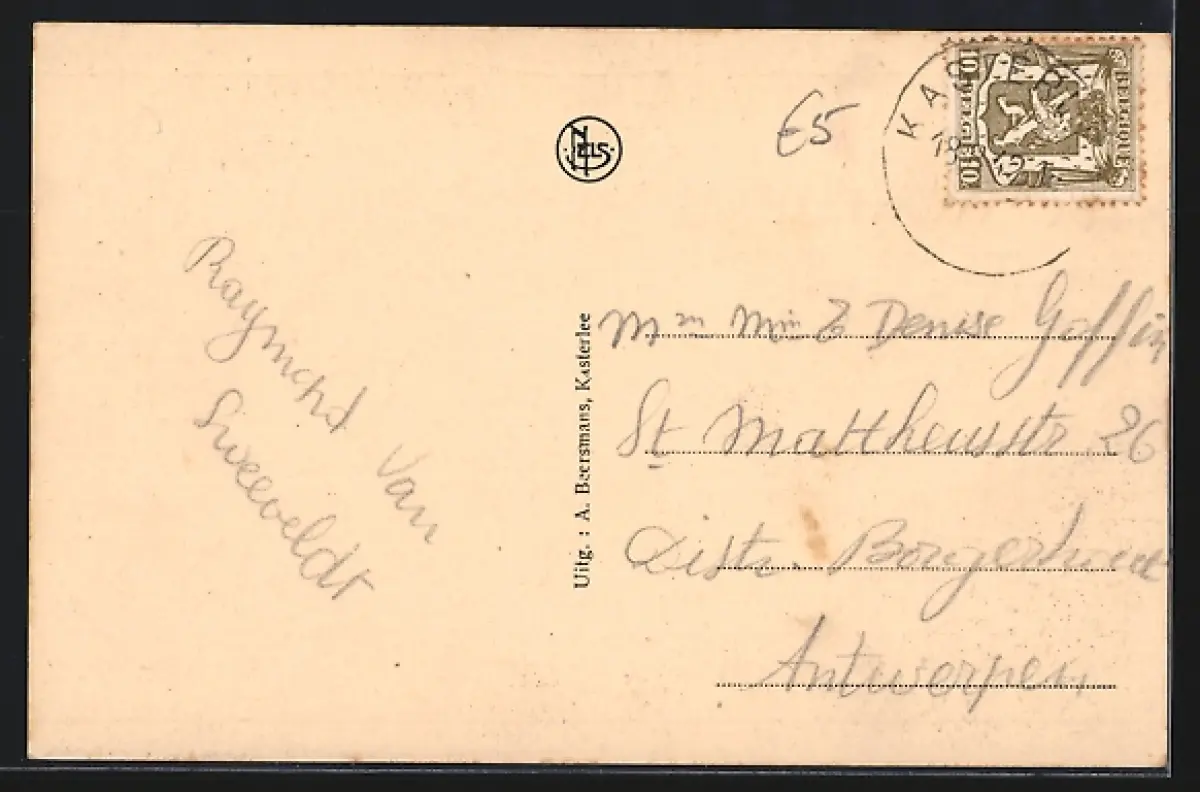 NELS
€5
BELGIQUE
10 BELGIE 10
Raymond Van
Sweeveldt
Uitg. : A. Beersmans, Kasterlee
Denise Goffin
St Mattheusstr 26
Distr. Borgerhout
Antwerpen